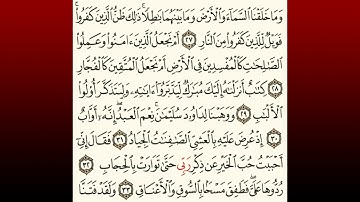 وَمَا خَلَقْنَا ٱلسَّمَآءَ وَٱلْأَرْضَ وَمَا بَيْنَهُمَا بَٰطِلًا ۚ ذَٰلِكَ ظَنُّ ٱلَّذِينَ كَفَرُوا۟ ۚ
فَوَيْلٌ لِّلَّذِينَ كَفَرُوا۟ مِنَ ٱلنَّارِ ٢٧ أَمْ نَجْعَلُ ٱلَّذِينَ ءَامَنُوا۟ وَعَمِلُوا۟
ٱلصَّٰلِحَٰتِ كَٱلْمُفْسِدِينَ فِى ٱلْأَرْضِ أَمْ نَجْعَلُ ٱلْمُتَّقِينَ كَٱلْفُجَّارِ
٢٨ كِتَٰبٌ أَنزَلْنَٰهُ إِلَيْكَ مُبَٰرَكٌ لِّيَدَّبَّرُوٓا۟ ءَايَٰتِهِۦ وَلِيَتَذَكَّرَ أُو۟لُوا۟
ٱلْأَلْبَٰبِ ٢٩ وَوَهَبْنَا لِدَاوُۥدَ سُلَيْمَٰنَ ۚ نِعْمَ ٱلْعَبْدُ ۖ إِنَّهُۥٓ أَوَّابٌ
٣٠ إِذْ عُرِضَ عَلَيْهِ بِٱلْعَشِىِّ ٱلصَّٰفِنَٰتُ ٱلْجِيَادُ ٣١ فَقَالَ إِنِّىٓ
أَحْبَبْتُ حُبَّ ٱلْخَيْرِ عَن ذِكْرِ رَبِّى حَتَّىٰ تَوَارَتْ بِٱلْحِجَابِ ٣٢
رُدُّوهَا عَلَىَّ ۖ فَطَفِقَ مَسْحًۢا بِٱلسُّوقِ وَٱلْأَعْنَاقِ ٣٣ وَلَقَدْ فَتَنَّا